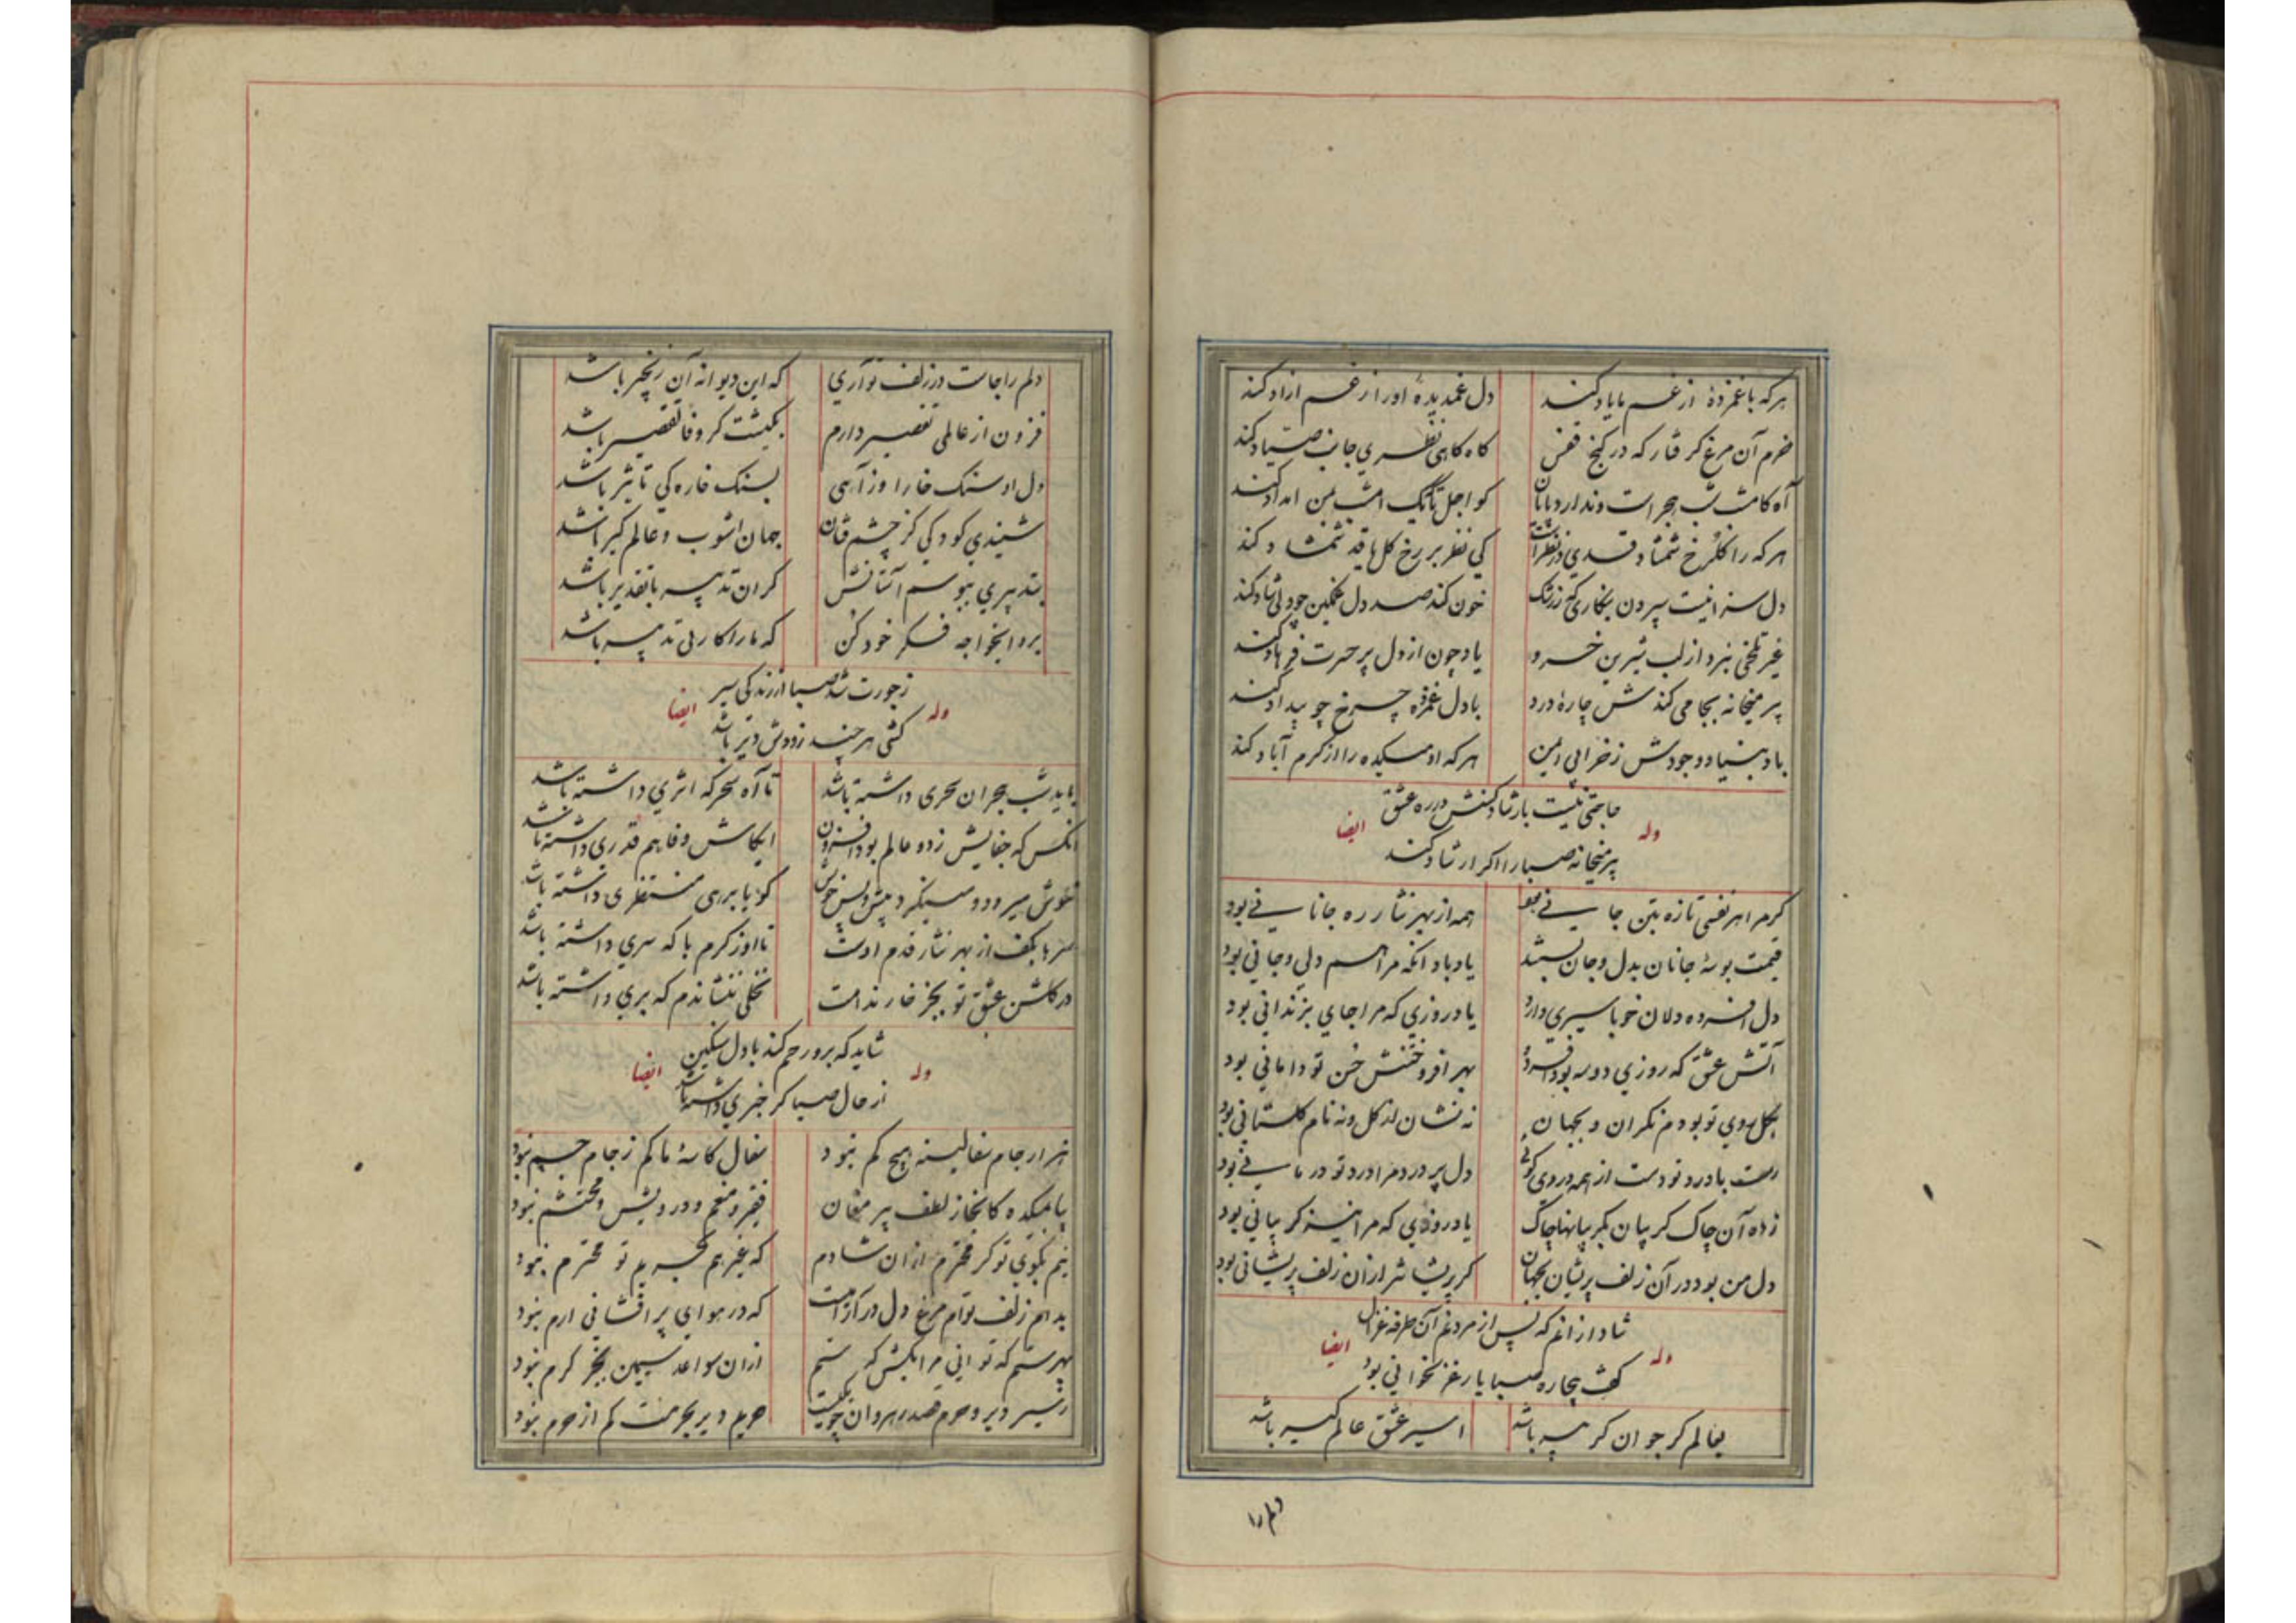 هرکه با غمزدهٔ از غم ما یاد کند
دل غمدیدهٔ او را ز غم ازاد کند
خرم آن مرغ کرفتار که در کنج قفس
کاه کاهی نظری جانب صیاد کند
آه کامشب شب هجر است و ندارد پایان
کو اجل تا که امشب بمن امداد کند
هرکه را کلرخ شمشاد قدی در نظر است
کی نظر بر رخ کل یا قد شمشاد کند
خون کند صد دل غمکین چو دلی شاد کند
غیر تلخی نبرد از لب شیرین خسرو
یاد چون از دل پر حسرت فرهاد کند
پیر میخانه بجا می کندش چارهٔ درد
با دل غمزده چرخ چو بیداد کند
باد بنیاد وجودش ز خرابی ایمن
هرکه او میکده را از کرم آباد کند
حاجتی نیست بارشاد کسش در ره عشق
پیر میخانه صبا را اکر ارشاد کند
وله ایضا
کرم اهر نفسی تازه بتن جانی بود
همه از بهر نثار ره جانانی بود
قیمت بوسهٔ جانان بدل و جان بستند
یاد باد انکه مرا هم دلی و جانی بود
دل افسرده دلان خو باسیری دارد
یاد روزی که مرا جای بزندانی بود
آتش عشق که روزی دو سه بود افسرده
بهر افروختنش حسن تو دامانی بود
بکل روی تو بودم نکران و بجهان
نه نشان از کل و نه نام کلستانی بود
دل پر درد مرا درد تو درمانی بود
زده آن چاک کریبان بکریبانها چاک
یاد روزی که مرا نیز کریبانی بود
دل من بود در آن زلف پریشان بجهان
کر پریشانتر از ان زلف پریشانی بود
شاد از انم که پس از مردنم آن طرفه غزال
کفت بیچاره صبا یار غزلخوانی بود
وله ایضا
بعالم کر جوان کر پیر باشد
اسیر عشق عالم کیر باشد
دلم را
دلم را جاست در زلف تو آری
که این دیوانه آن زنجیر باشد
فزون از عالمی تقصیر دارم
بکیشت کر وفا تقصیر باشد
دل او سنک خارا وز آهی
بسنک خاره کی تاثیر باشد
شنیدی کودکی کز چشم فتان
جهان اشوب و عالم کیر باشد
بتدبیری ببوسم آستانش
کر ان تدبیر با تقدیر باشد
برو ایخواجه فکر خود کن
که ما را کار بی تدبیر باشد
ز جورت شد صبا از زندکی سیر
کشی هرچند زودش دیر باشد
وله ایضا
باید شب هجران سحری داشته باشد
تا آه سحرکه اثری داشته باشد
انکس که جفایش ز دو عالم بود افزون
ایکاش وفا هم قدری داشته باشد
خوش میرود و مینکرد پیش و پس خویش
کویا برهی منتظری داشته باشد
سرها بکف از بهر نثار قدم اوست
تا او ز کرم با که سری داشته باشد
در کلشن عشق تو بجز خار ندامت
نخلی ننشاندم که بری داشته باشد
شاید که برو رحم کند با دل سنکین
از حال صبا کر خبری داشته باشد
وله ایضا
هزار جام سفالینه هیچ کم نبود
سفال کاسهٔ ما کم ز جام جم نبود
بیا بمیکده کانجا ز لطف پیر مغان
فقیر و منعم و درویش و محتشم نبود
نیم بکوی تو کر محترم از ان شادم
که غیر هم بحریم تو محترم نبود
بدام زلف توام مرغ دل در آزار است
که در هوای پر افشانی ارم نبود
بهر ستم که توانی مرا بکش که ستم
از ان سواعد سیمین بجز کرم نبود
ز سیر دیر و حرم قصد رهروان چو یکیست
حریم دیر بحرمت کم از حرم نبود